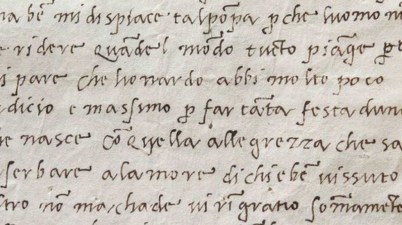 na bẽ mi dispiace tal põpa pche l'uomo nõ
e ridere quãdel mõdo tucto piãge pe
i pare che lionardo abbi molto poco
dicio e massimo p far tãta festa dun
e nasce cõ quella allegrezza che sa
serbare ala morte di chi e bẽ vissuto
tro nõ m achade vi rĩgratio sommamẽte